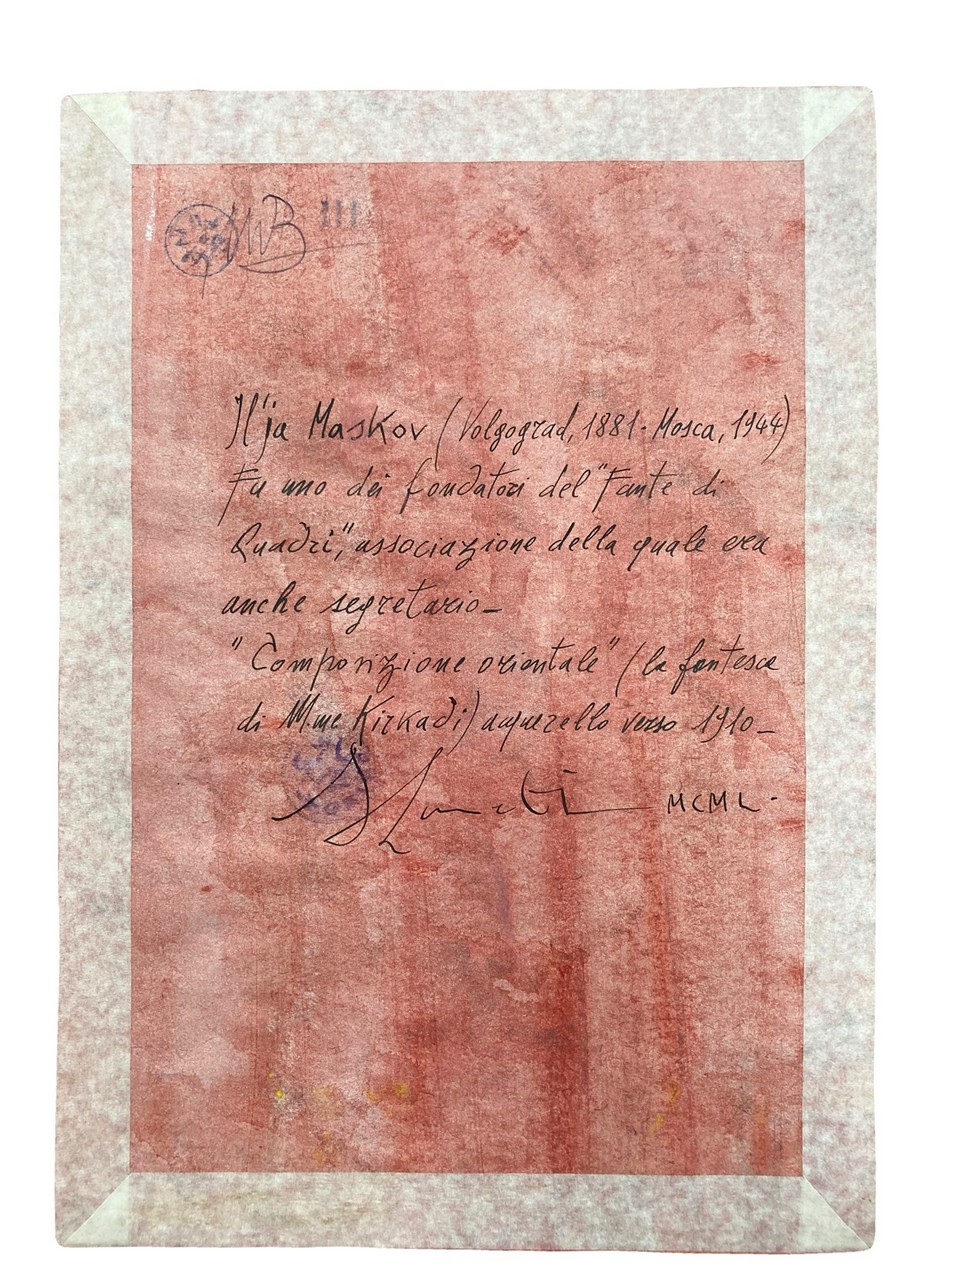 MB III
Il'ja Maskov (Volgograd, 1881- Mosca, 1944)
Fu uno dei fondatori del "Fante di
Quadri", associazione della quale era
anche segretario-
"Composizione orientale" (la fantesca
di Mme Kirkadi) aquerello verso 1910-
MCML.